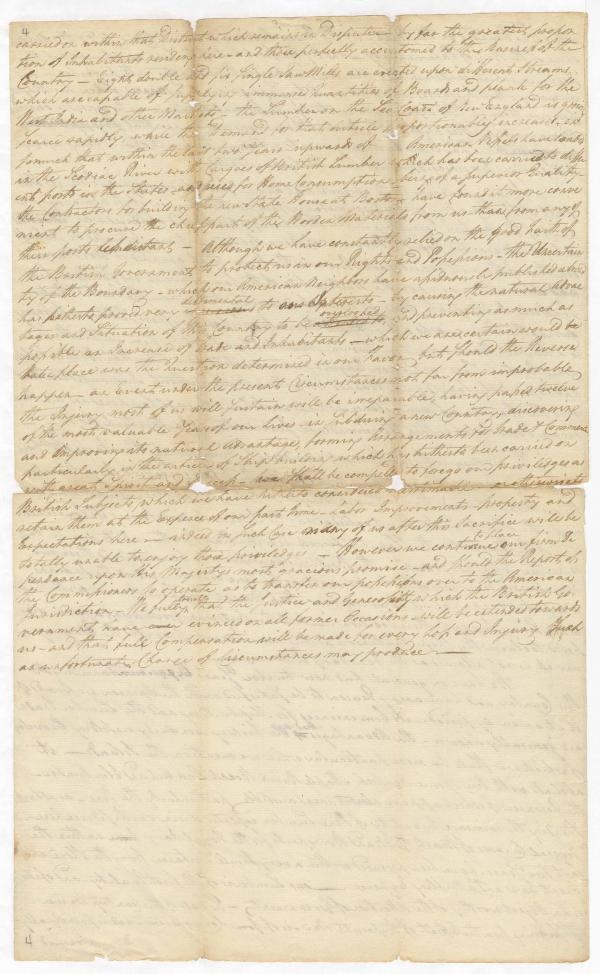 4
carried on within that District which remains in Dispute — by far the greatest propor
tion of Inhabitants residing here — and those perfectly accustomed to the Business of the
Country — Eight double and six single Saw Mills are erected upon different Streams,
which are capable of immense quantities of Boards and plank for the
West India and other Markets — the Lumber on the Sea Coast of New England is grow
Scarce rapidly while the Demand for that article proportionably increases,
somuch that within the last two Years upwards of American Vessels have loaded
in the Scodiac River with Cargoes of British Lumber which has been carried to differ
ent ports in the States — and for Home Consumption — being of a superior Quality
the Contractors for building the new State House at Boston have found it more conve
nient to procure the chief part of the Wooden Materials from us than from any of
their ports — Although we have constantly relied on the good faith of
the British Government to protect us in our Rights and Possessions — the Uncertain
ty of the Boundary — which our American Neighbors have assiduously published abroad
has hitherto proved very detrimental to our Interests — by causing the natural Advan
tages and Situation of this Country to be and preventing as much as
possible an Increase of Trade and Inhabitants — which we are certain would be
take place was the Question determined in our favor but should the Reverse
happen — an Event under the present Circumstances not far from improbable
the Injury most of us will sustain will be irreparable, having passed twelve
of the most valuable Years of our Lives in subduing a new Country, discovering
and Improving its natural Advantages, forming Arrangements for Trade & Commerce
particularly in the article of Ship building which has hitherto been carried on
with great Spirit and we shall be compelled to forego our priviledges as
British Subjects, which we have hitherto considered or otherwise
retain them at the Expence of our past time — Labor Improvements — property and
Expectations here — indeed in such Case many of us after this Sacrifice will be
totally unable to enjoy those priviledges — However we continue to place our firm De
pendance upon His Majesty's most gracious promise — and should the Report of
the Commissioners so operate as to transfer our possessions over to the American
Jurisdiction — We fully trust that the Justice and Generosity which the British Go
vernment have evinced on all former Occasions — will be extended towards
us — and that full Compensation will be made for every loss and Injury such
an unfortunate Change of Circumstances may produce —
4